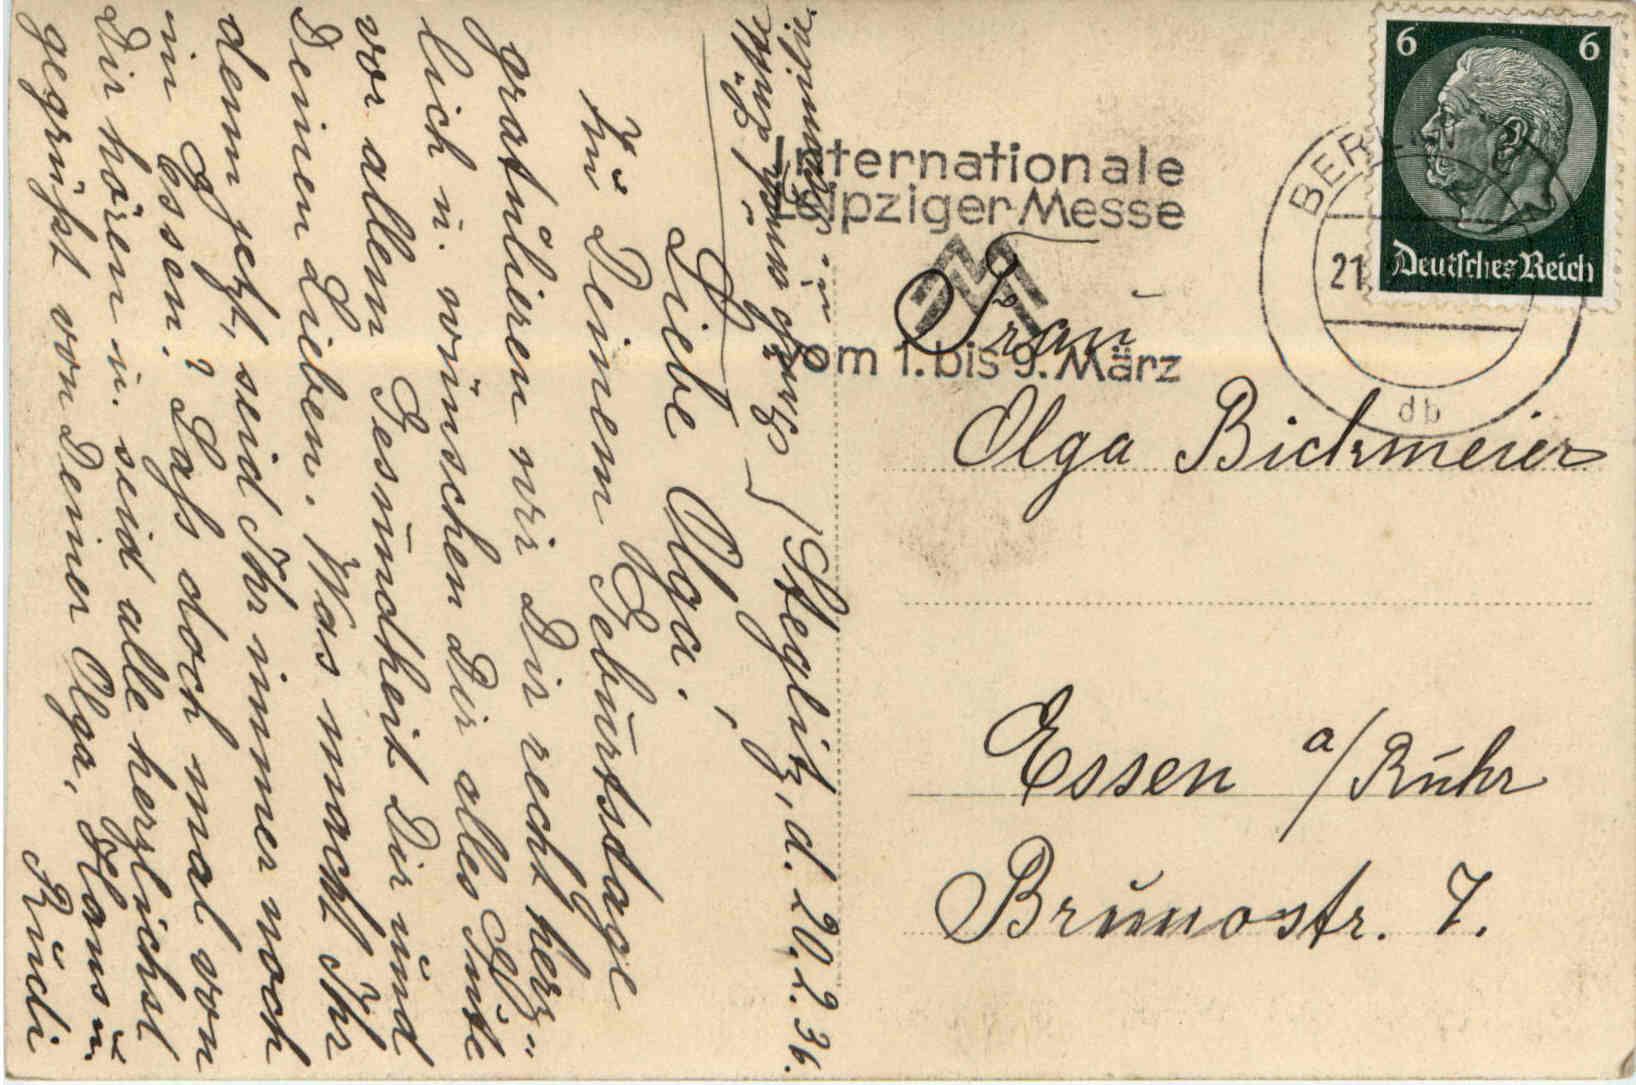 Steglitz, d. 20.2.36.
Liebe Olga!
Zu Deinem Geburtstage
gratulieren wir Dir recht herz-
lich u. wünschen Dir alles Gute
vor allem Gesundheit Dir und
Deinen Lieben. Was macht Ihr
denn jetzt, seid Ihr immer noch
in Essen? Laß doch mal von
Dir hören u. seid alle herzlichst
gegrüßt von Deiner Olga, Hans u.
Rudi
Internationale
Leipziger Messe
vom 1. bis 9. März
BERLIN
21
db
6 6
Deutsches Reich
Frau
Olga Bickmeier
Essen a/Ruhr
Brunostr. 7.